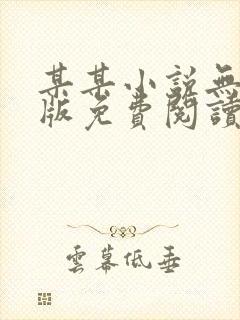 某某小說無
版免費閱讀
雲幕低垂